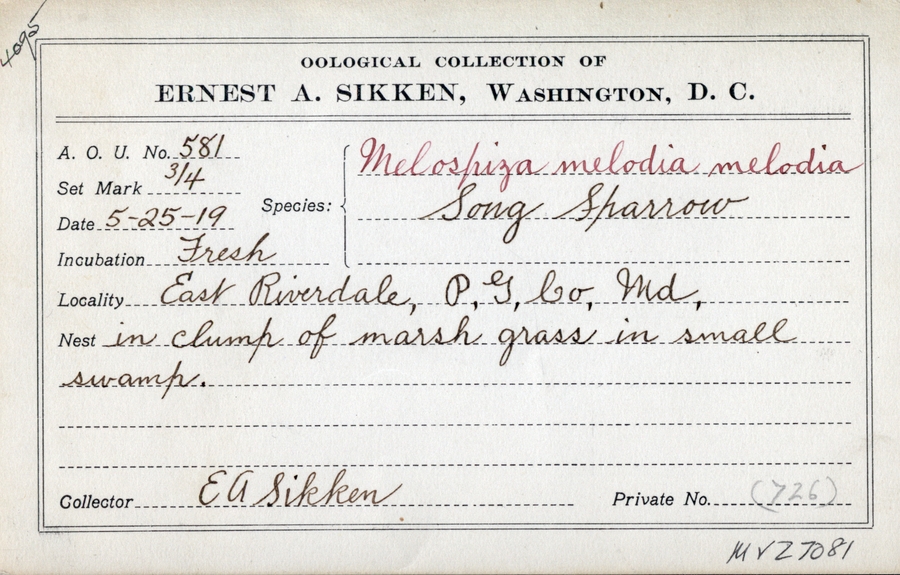 4095
OOLOGICAL COLLECTION OF
ERNEST A. SIKKEN, WASHINGTON, D. C.
A. O. U. No. 581
Set Mark 3/4
Date 5-25-19
Incubation Fresh
Species: Melospiza melodia melodia
Song Sparrow
Locality East Riverdale, P.G. Co, Md,
Nest in clump of marsh grass in small
swamp.
Collector E A Sikken
Private No. (726)
MVZ 7081